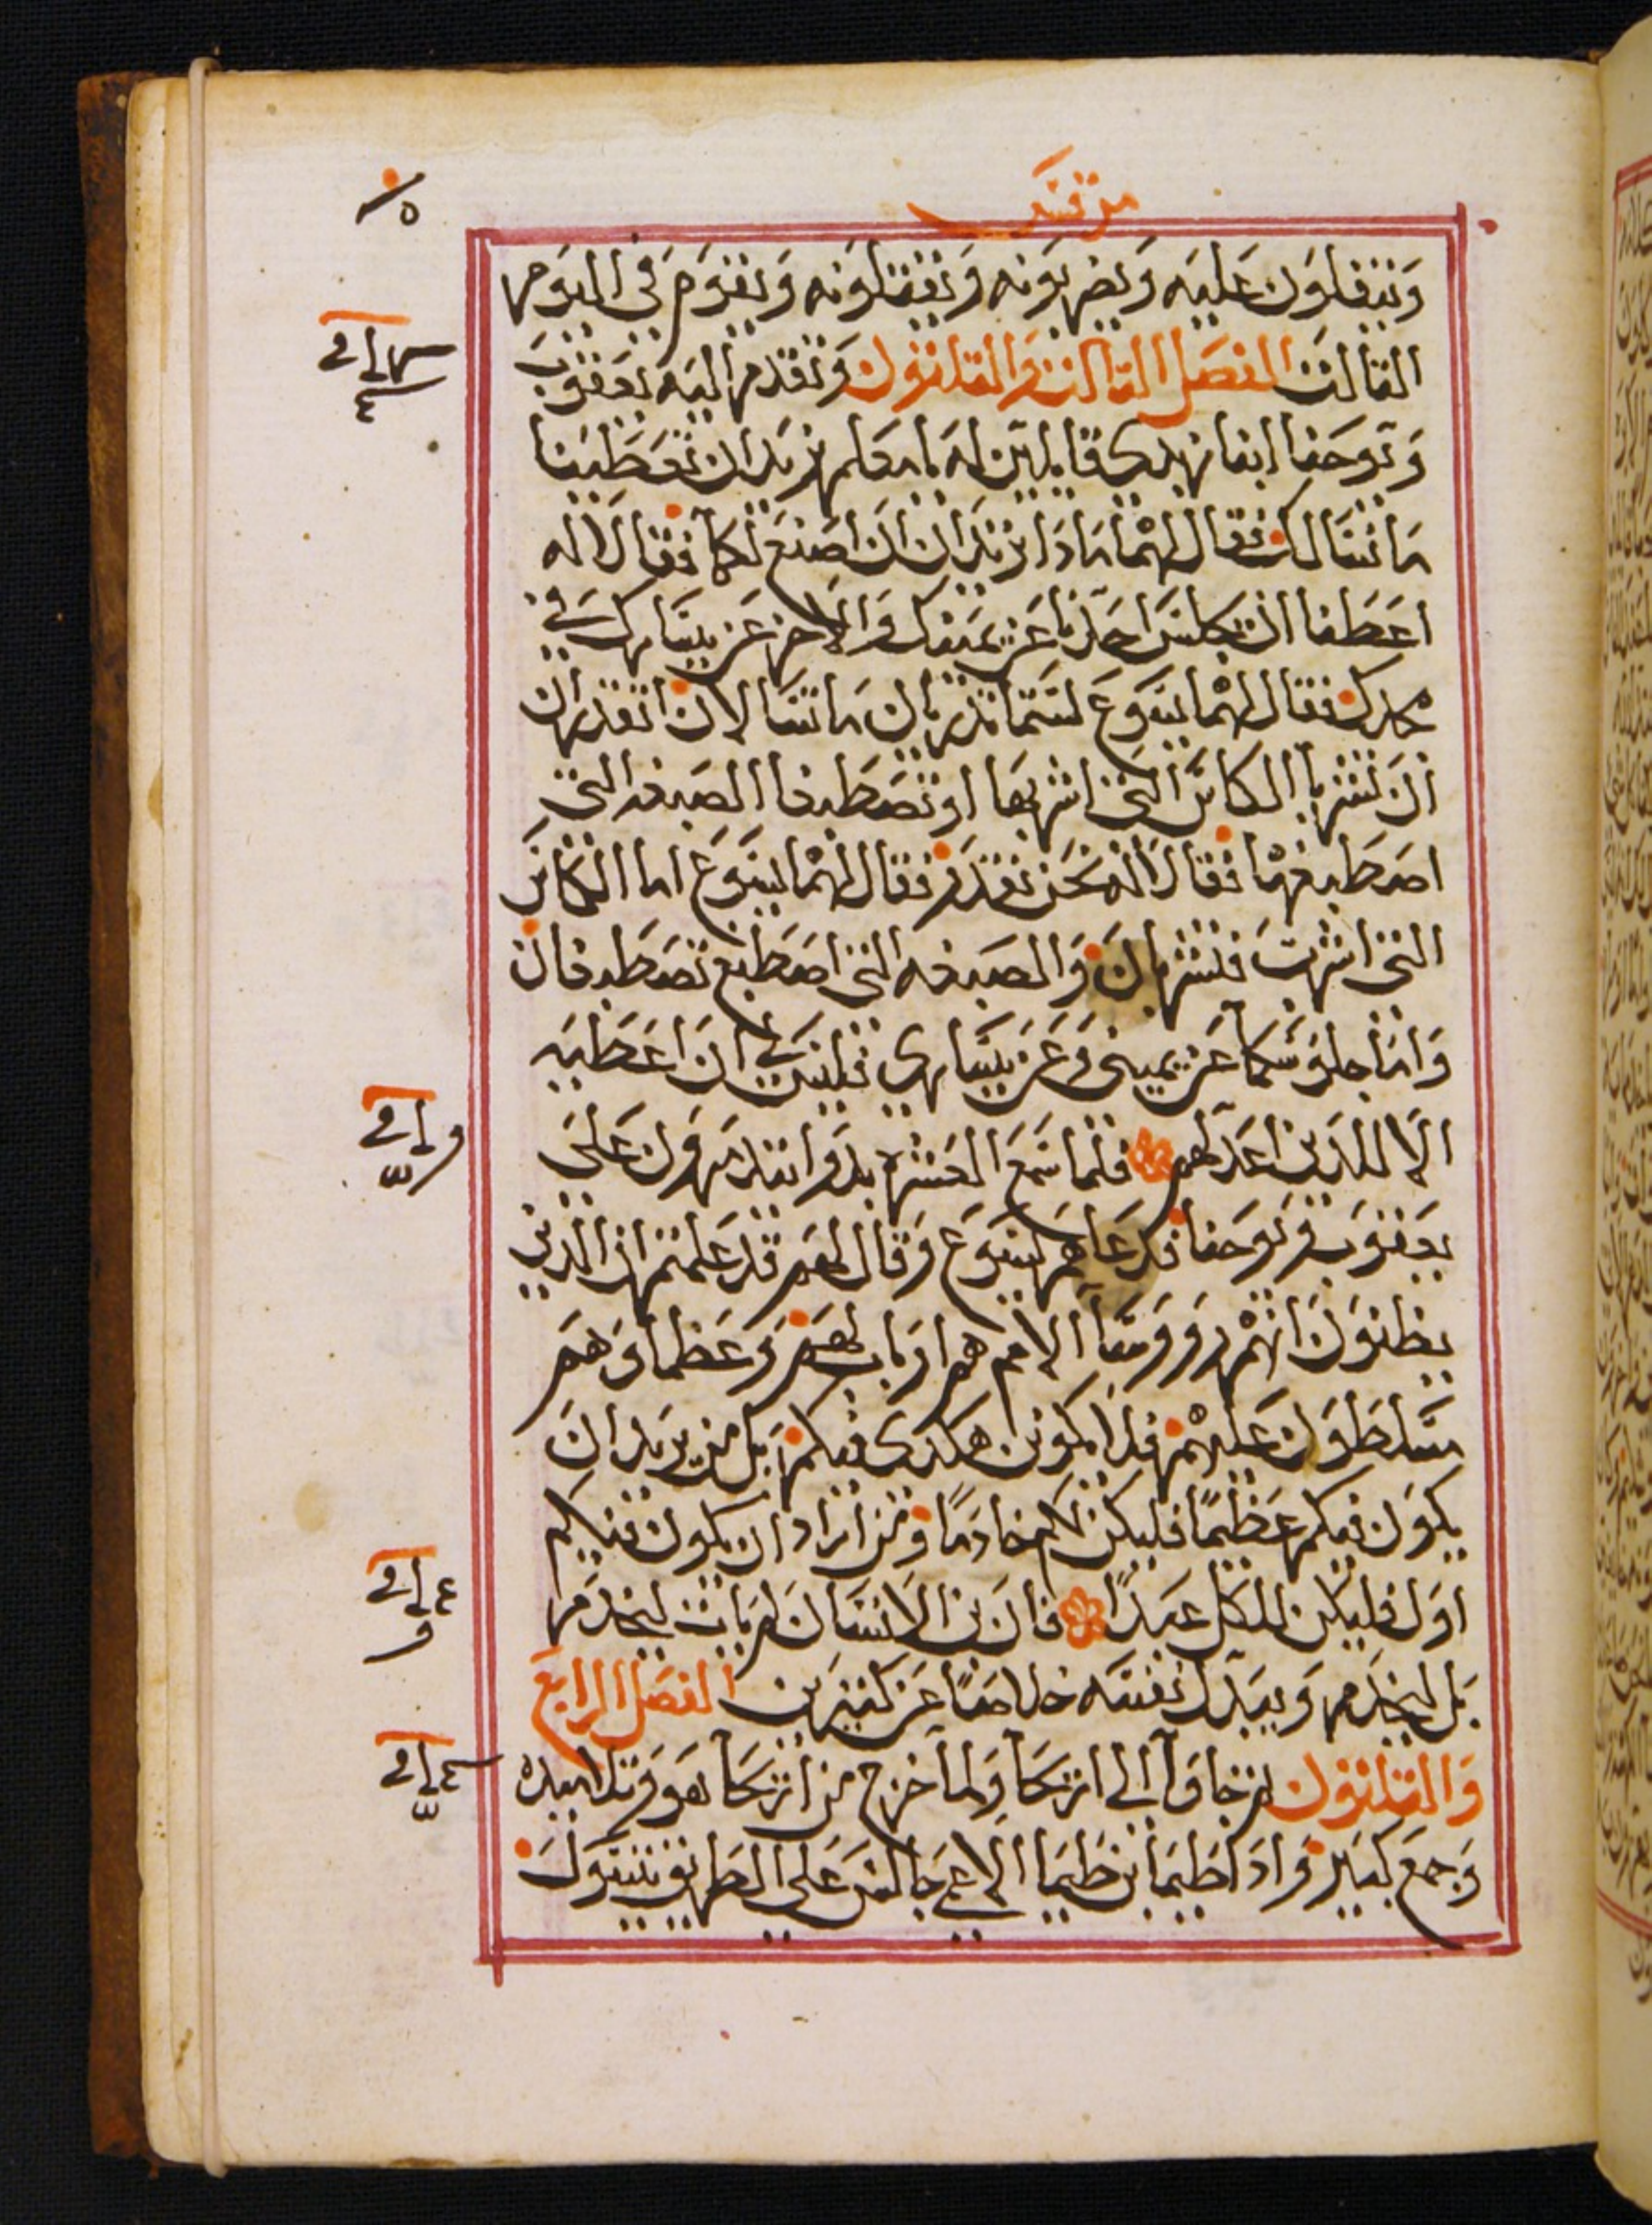 مرقس
ويتفلون عليه ويضربونه ويقتلونه ويقوم في اليوم
الثالث الفصل الثالث والثلثون وتقدم اليه يعقوب
ويوحنا ابنا زبدى قايلين له يا معلم نريد ان تعطينا
ما نسالك فقال لهما ماذا تريدان ان اصنع لكما فقالا له
اعطنا ان يجلس احدنا عن يمينك والاخر عن يسارك في
مجدك فقال لهما يسوع لستما تدريان ما تسالان اتقدران
ان تشربا الكاس التي اشربها او تصطبغا الصبغه التي
اصطبغهما فقالا له نحن نقدر فقال لهما يسوع اما الكاس
التي اشرب فتشربان والصبغه التي اصطبغ تصطبغان
واما جلوسكما عن يميني وعن يساري فليس لي ان اعطيه
الا للذين اعد لهم فلما سمع العشره بدوا يتذمرون على
يعقوب ويوحنا فدعاهم يسوع وقال لهم قد علمتم ان الذين
يظنون انهم روسا الامم هم اربابهم وعظماوهم
متسلطون عليهم فلا يكون هكذى فيكم بل من يريد ان
يكون فيكم عظيما فليكن لكم خادما ومن اراد ان يكون فيكم
اول فليكن للكل عبدا فان بن الانسان لم يات ليخدم
بل ليخدم ويبدل نفسه خلاصا عن كثيرين الفصل الرابع
والثلثون ثم جاوا الى اريحا ولما خرج من اريحا هو وتلاميده
وجمع كبير واد اطيما بن طيما الاعمى جالس على الطريق يتسول